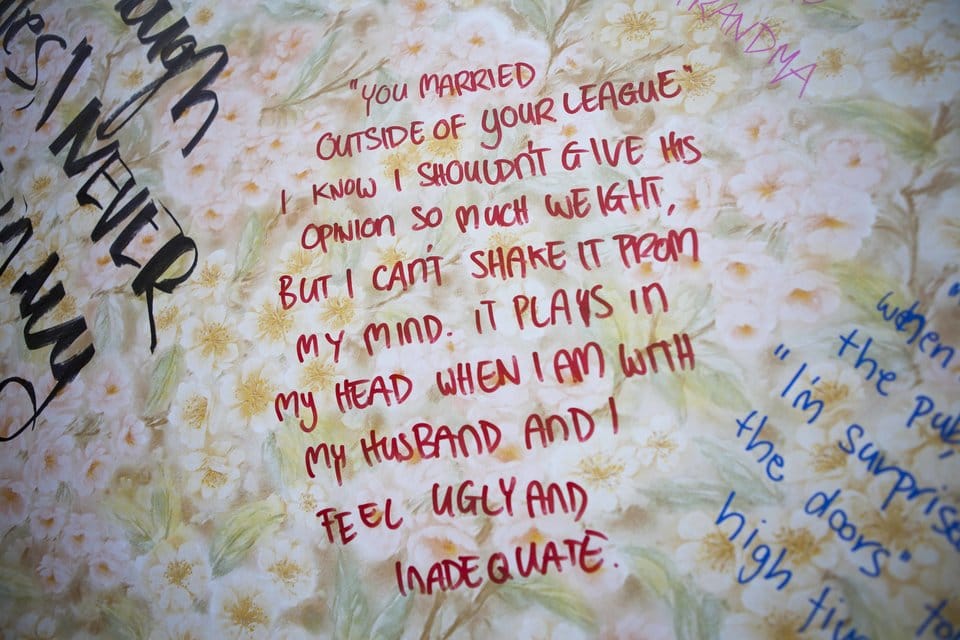 "YOU MARRIED
OUTSIDE OF YOUR LEAGUE"
I KNOW I SHOULDN'T GIVE HIS
OPINION SO MUCH WEIGHT,
BUT I CAN'T SHAKE IT FROM
MY MIND. IT PLAYS IN
MY HEAD WHEN I AM WITH
MY HUSBAND AND I
FEEL UGLY AND
INADEQUATE.
I NEVER
GRANDMA
when
the pub,
"I'm surprised
the doors"
high